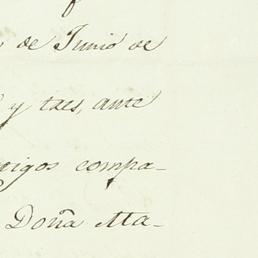 de Junio de
y tres, ante
tigos compa-
Doña Ma-